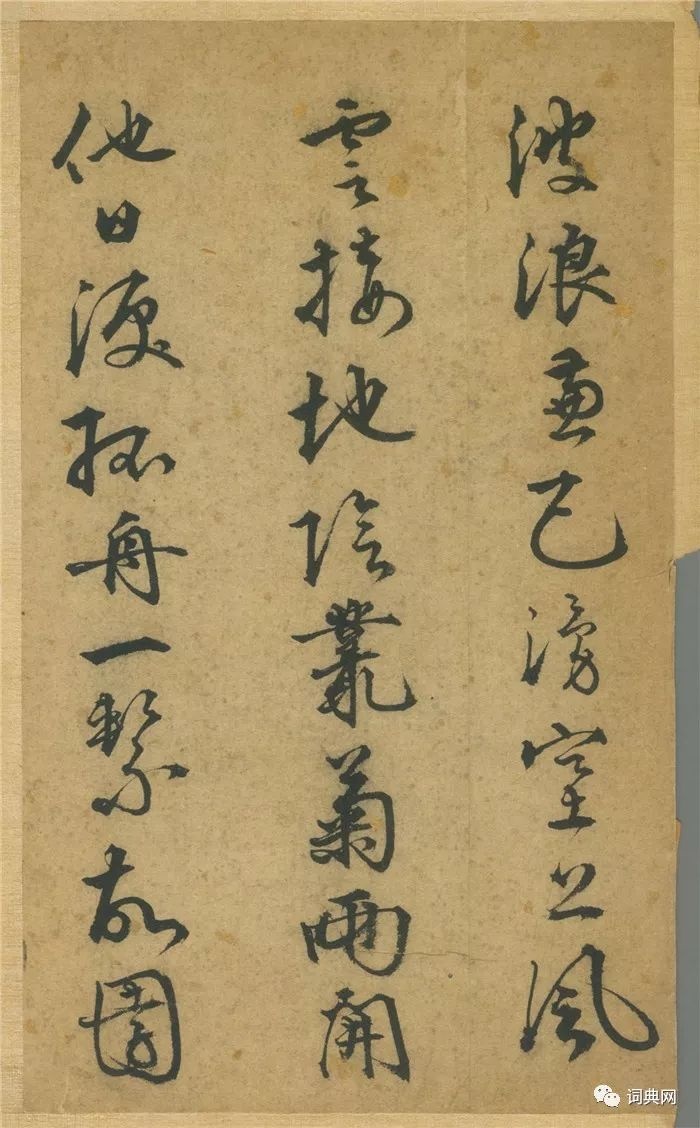 波浪兼天湧塞上風
雲接地陰叢菊兩開
他日淚孤舟一繫故園
词典网